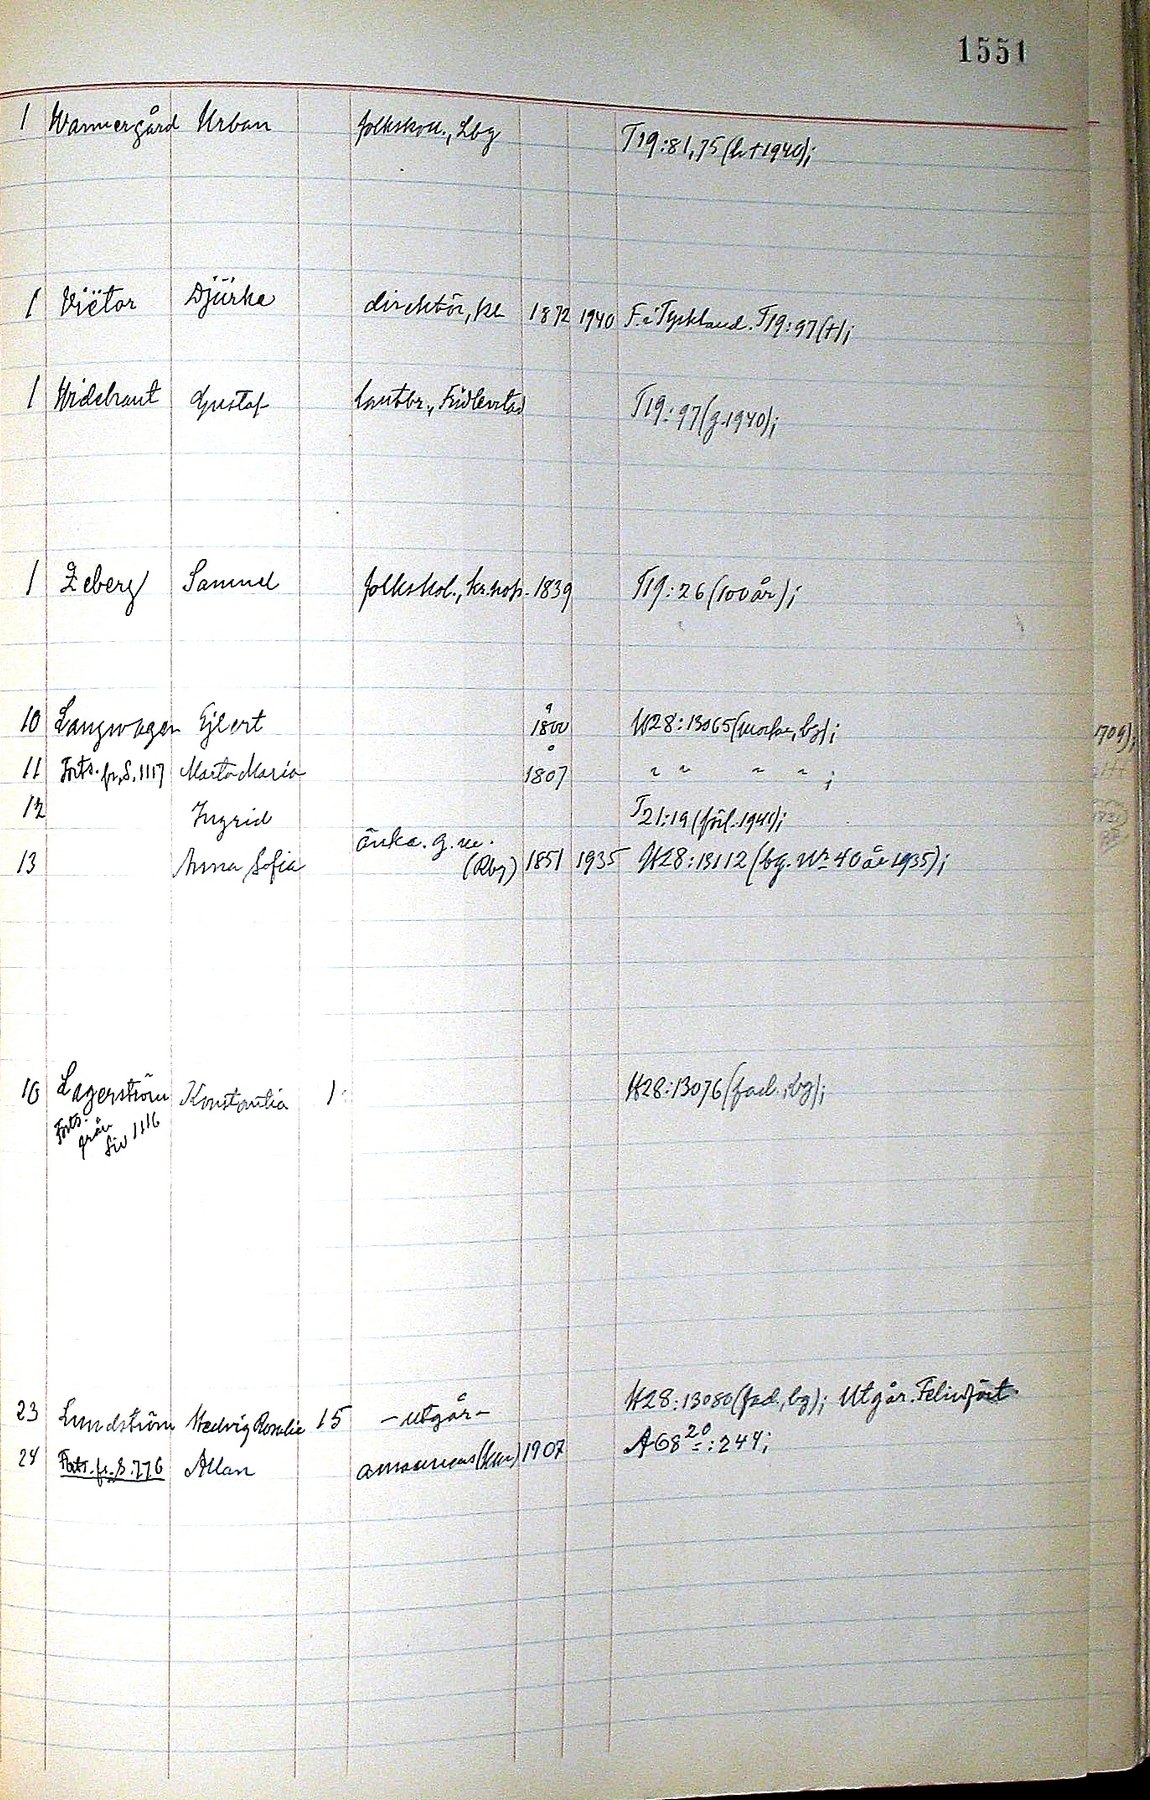 1551
1 Wannergård Urban folkskoll., Lbg T19:81,75 (h+1940);
1 Viëtor Djürke direktör, Kl 1872 1940 F. i Tyskland. T19:97(+);
1 Widebrant Gustaf lantbr., Fridlevstad T19:97(g.1940);
1 Zeberg Samuel folkskol., kr.hop. 1839 T19:26 (100 år);
10 Langwagen Ejlert 1800 U28:13065 (morfar, bg);
11 Forts. fr. S. 1117 Marta Maria 1807 " " " " ;
12 Ingrid T21:19 (förl. 1941);
änka. g. m.
13 Anna Sofia (Rbg) 1851 1935 U28:13112 (bg. Nr 40 år 1935);
10 Lagerström Konstantia 1 U28:13076 (fad., bg);
Forts.
från
sid 1116
23 Lundström Hedvig Rosalie 15 - utgår - U28:13080 (fad., bg); Utgår. Felinfört.
24 Forts. fr. S. 776 Allan 1907 A68 20 :244;
1709);